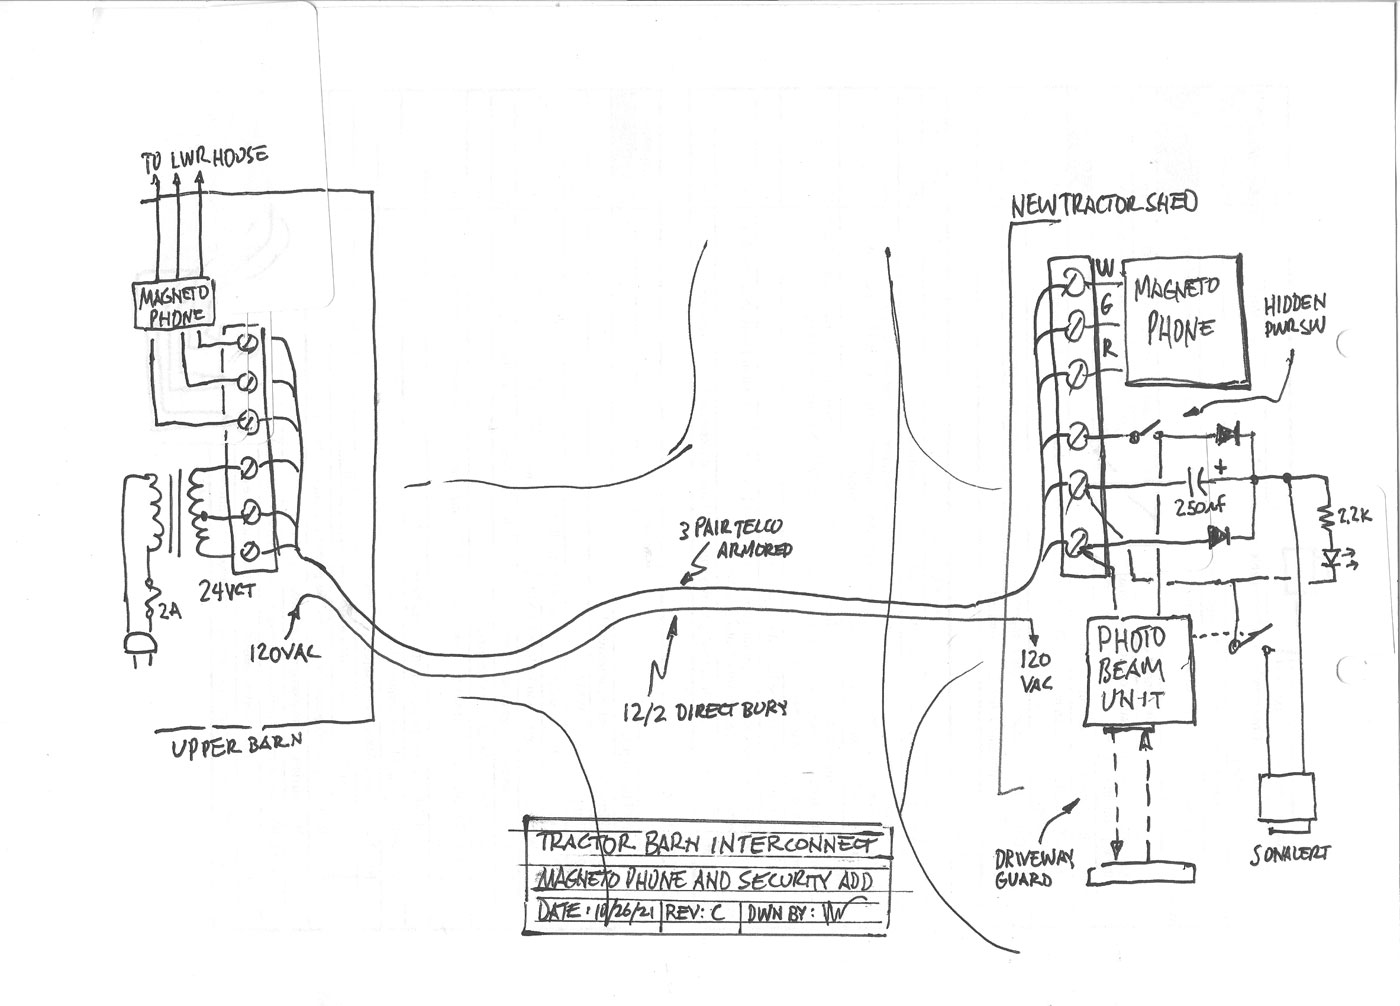 TO LWR HOUSE
MAGNETO
PHONE
24VCT
2A
120VAC
UPPER BARN
3 PAIR TELCO
ARMORED
12/2 DIRECT BURY
NEW TRACTOR SHED
W
G
R
MAGNETO
PHONE
HIDDEN
PWR SW
+
250µf
2.2K
120
VAC
PHOTO
BEAM
UNIT
DRIVEWAY
GUARD
SONALERT
TRACTOR BARN INTERCONNECT
MAGNETO PHONE AND SECURITY ADD
DATE: 10/26/21 REV: C DWN BY: